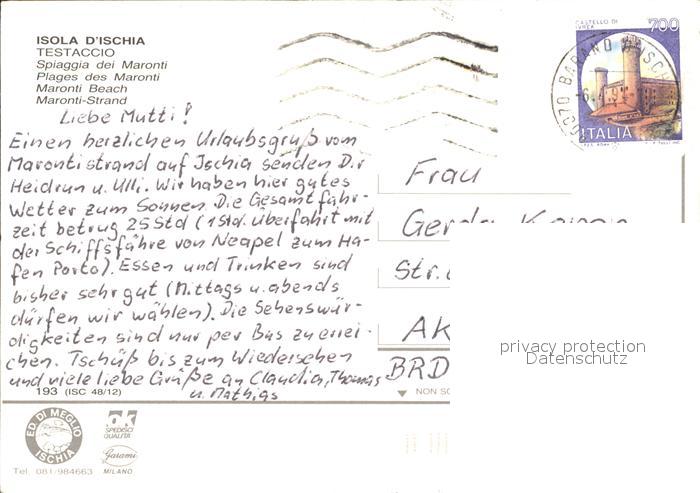 ISOLA D'ISCHIA
TESTACCIO
Spiaggia dei Maronti
Plages des Maronti
Maronti Beach
Maronti-Strand
Liebe Mutti!
Einen herzlichen Urlaubsgruß vom
Marontistrand auf Ischia senden Dir
Heidrun u. Ulli. Wir haben hier gutes
Wetter zum Sonnen. Die Gesamtfahr-
zeit betrug 25 Std (1 Std. Überfahrt mit
der Schiffsfähre von Neapel zum Ha-
fen Porto). Essen und Trinken sind
bisher sehr gut (Mittags u. abends
dürfen wir wählen). Die Sehenswür-
digkeiten sind nur per Bus zu errei-
chen. Tschüß bis zum Wiedersehen
und viele liebe Grüße an Claudia, Thomas
u. Mathias
193 (ISC 48/12)
ED. DI MEGLIO
ISCHIA
Tel. 081/984663
ok
SPEDISCI
QUALITÀ
Garami
MILANO
CASTELLO DI
IVREA
700
ITALIA
BARANO D'ISCH
Frau
Gerda
Str.
AK
BRD
NON SC
privacy protection
Datenschutz